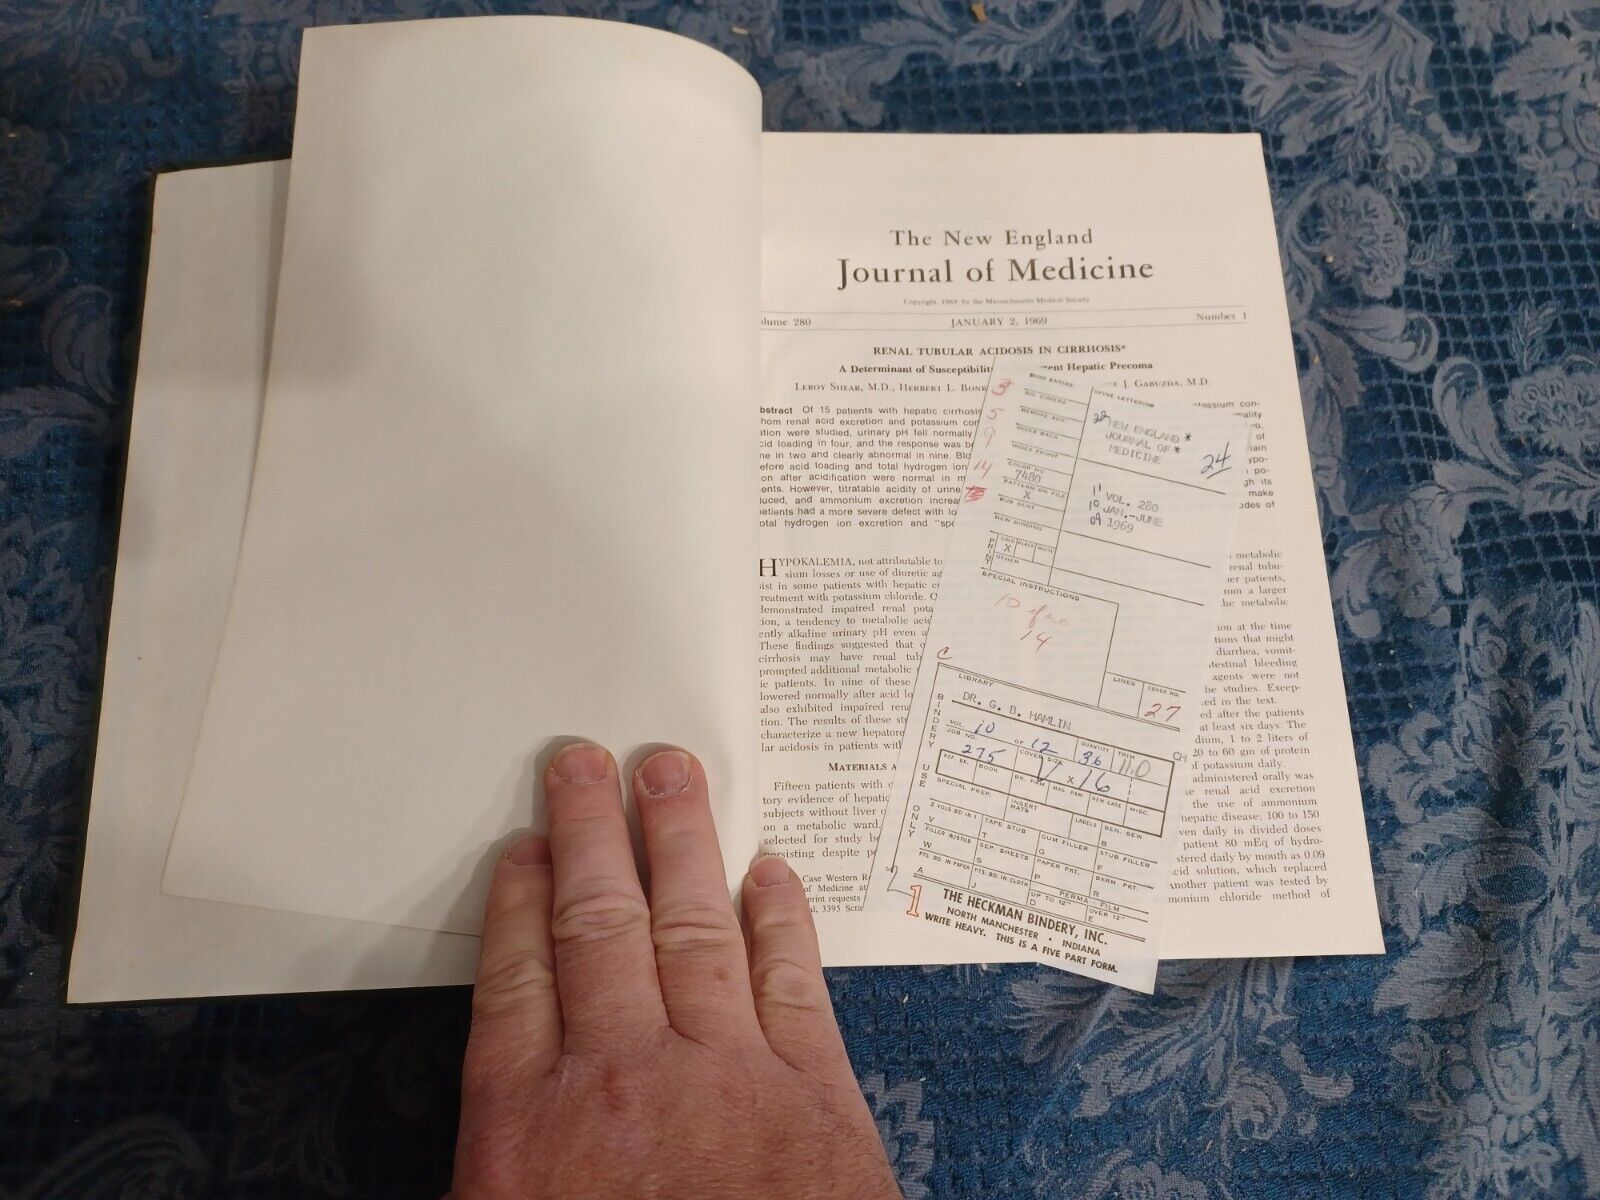 The New England
Journal of Medicine
Copyright, 1969, by the Massachusetts Medical Society
olume 280 JANUARY 2, 1969 Number 1
RENAL TUBULAR ACIDOSIS IN CIRRHOSIS*
A Determinant of Susceptibilit ent Hepatic Precoma
LEROY SHEAR, M.D., HERBERT L. BONK J. GABUZDA, M.D.
bstract Of 15 patients with hepatic cirrhosis
hom renal acid excretion and potassium con
ation were studied, urinary pH fell normally
cid loading in four, and the response was b
ne in two and clearly abnormal in nine. Blo
efore acid loading and total hydrogen ion
on after acidification were normal in m
ents. However, titratable acidity of urine
luced, and ammonium excretion increa
atients had a more severe defect with lo
otal hydrogen ion excretion and "spo
tassium con-
mality
of
ain
ypo-
po-
gh its
make
odes of
HYPOKALEMIA, not attributable to
sium losses or use of diuretic ag
sist in some patients with hepatic ci
treatment with potassium chloride.
demonstrated impaired renal pota
tion, a tendency to metabolic acid
ently alkaline urinary pH even a
These findings suggested that
cirrhosis may have renal tub
prompted additional metabolic
ic patients. In nine of these
lowered normally after acid lo
also exhibited impaired rena
tion. The results of these stu
characterize a new hepatore
lar acidosis in patients with
MATERIALS A
Fifteen patients with
tory evidence of hepatic
subjects without liver
on a metabolic ward.
selected for study be
persisting despite p
Case Western Re
of Medicine at
print requests
al, 3395 Scra
metabolic
renal tubu-
er patients,
rom a larger
he metabolic
ion at the time
tions that might
diarrhea, vomit-
testinal bleeding
agents were not
he studies. Excep-
ed in the text.
ed after the patients
at least six days. The
dium, 1 to 2 liters of
20 to 60 gm of protein
of potassium daily.
administered orally was
e renal acid excretion
the use of ammonium
hepatic disease; 100 to 150
ven daily in divided doses
patient 80 mEq of hydro-
stered daily by mouth as 0.09
cid solution, which replaced
nother patient was tested by
monium chloride method of
3
5
9
14
BIND ENTIRE
NO COVERS
REMOVE ADS
INDEX BACK
INDEX FRONT
COLOR NO.
7480
PATTERN ON FILE
X
RUB SENT
NEW BINDING
PRINT
GOLD BLACK WHITE
X
OTHER
SPINE LETTERING
22 NEW ENGLAND *
JOURNAL OF *
MEDICINE
24
11 VOL. 280
10 JAN.-JUNE
09 1969
SPECIAL INSTRUCTIONS
10
14
LINES
COVER NO.
27
C
LIBRARY
DR. G. B. HAMLIN
BINDERY USE ONLY
VOL. 10 OF 12
QUANTITY
36
TRIM
11.0
CH
JOB NO.
275
COVER SIZE
X 16
REF. BK. BOOK BK. PAM. MAG. PAM. NEW CASE MISC.
SPECIAL PREP. INSERT MATS LABELS BEN. SEW
2 VOLS. BD IN 1 TAPE STUB GUM FILLER STUB FILLER
V T G B
FILLER W/STUB SEP. SHEETS PAPER PKT. BKRM. PKT.
W S P F
PTS. BD. IN PAPER PTS. BD. IN CLOTH PERMA-FILM
UP TO 12" OVER 12"
A J D E R
1
THE HECKMAN BINDERY, INC.
NORTH MANCHESTER • INDIANA
WRITE HEAVY. THIS IS A FIVE PART FORM.